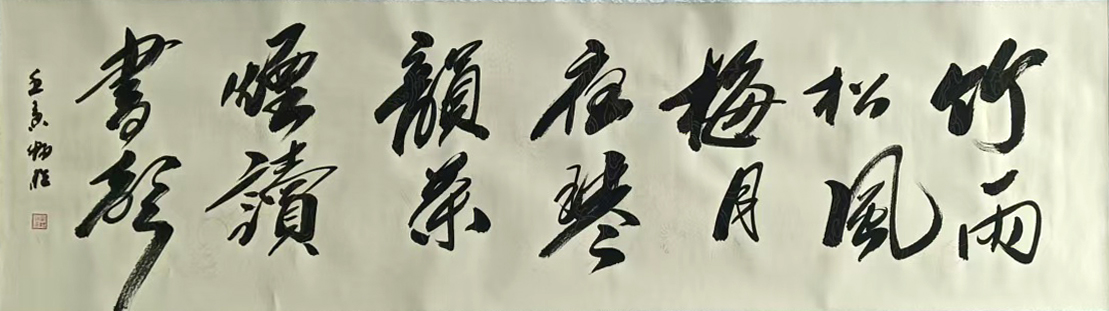 竹雨
松風
梅月
夜琴
韻茶
煙讀
書聲